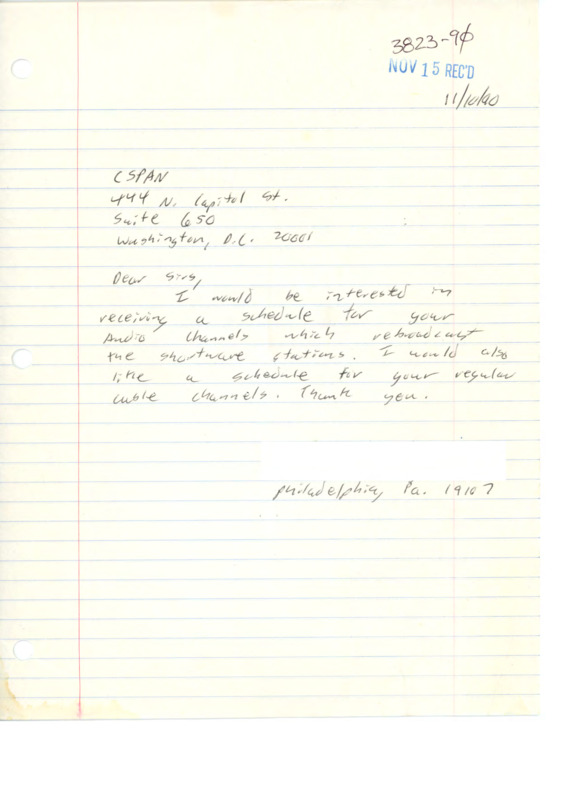 3823-90
NOV 15 REC'D
11/10/90
CSPAN
444 N. Capitol St.
Suite 650
Washington, D.C. 20001
Dear Sirs,
I would be interested in
receiving a schedule for your
Audio channels which rebroadcast
the shortwave stations. I would also
like a schedule for your regular
cable channels. Thank you.
Philadelphia, Pa. 19107